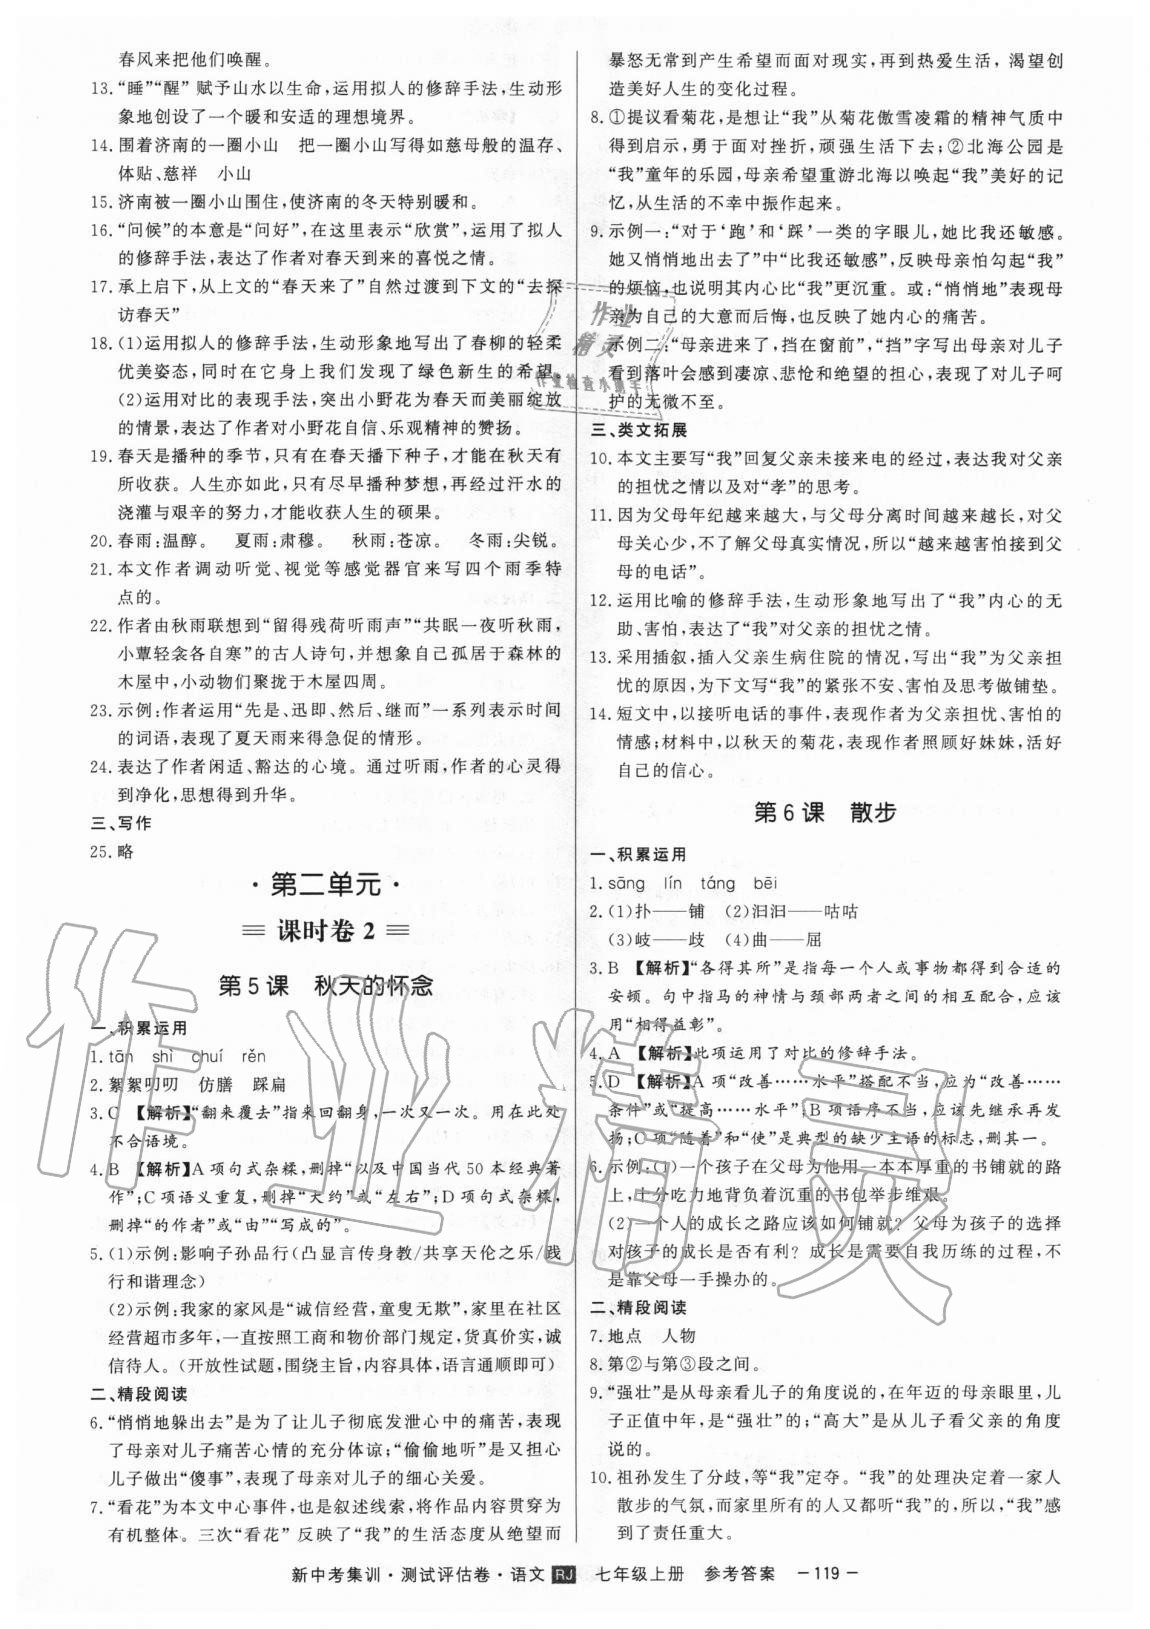 春风来把他们唤醒。
13.“睡”“醒”赋予山水以生命，运用拟人的修辞手法，生动形
象地创设了一个暖和安适的理想境界。
14.围着济南的一圈小山　把一圈小山写得如慈母般的温存、
体贴、慈祥　小山
15.济南被一圈小山围住，使济南的冬天特别暖和。
16.“问候”的本意是“问好”，在这里表示“欣赏”，运用了拟人
的修辞手法，表达了作者对春天到来的喜悦之情。
17.承上启下，从上文的“春天来了”自然过渡到下文的“去探
访春天”
18.(1)运用拟人的修辞手法，生动形象地写出了春柳的轻柔
优美姿态，同时在它身上我们发现了绿色新生的希望。
(2)运用对比的表现手法，突出小野花为春天而美丽绽放
的情景，表达了作者对小野花自信、乐观精神的赞扬。
19.春天是播种的季节，只有在春天播下种子，才能在秋天有
所收获。人生亦如此，只有尽早播种梦想，再经过汗水的
浇灌与艰辛的努力，才能收获人生的硕果。
20.春雨：温醇。　夏雨：肃穆。　秋雨：苍凉。　冬雨：尖锐。
21.本文作者调动听觉、视觉等感觉器官来写四个雨季特
点的。
22.作者由秋雨联想到“留得残荷听雨声”“共眠一夜听秋雨，
小簟轻衾各自寒”的古人诗句，并想象自己孤居于森林的
木屋中，小动物们聚拢于木屋四周。
23.示例：作者运用“先是、迅即、然后、继而”一系列表示时间
的词语，表现了夏天雨来得急促的情形。
24.表达了作者闲适、豁达的心境。通过听雨，作者的心灵得
到净化，思想得到升华。
三、写作
25.略
·第二单元·
课时卷2
第5课　秋天的怀念
一、积累运用
1.tān　shì　chuí　rěn
2.絮絮叨叨　仿膳　踩扁
3.C　【解析】“翻来覆去”指来回翻身，一次又一次。用在此处
不合语境。
4.B　【解析】A项句式杂糅，删掉“以及中国当代50本经典著
作”；C项语义重复，删掉“大约”或“左右”；D项句式杂糅，
删掉“的作者”或“由”“写成的”。
5.(1)示例：影响子孙品行(凸显言传身教/共享天伦之乐/践
行和谐理念)
(2)示例：我家的家风是“诚信经营，童叟无欺”，家里在社区
经营超市多年，一直按照工商和物价部门规定，货真价实，诚
信待人。(开放性试题，围绕主旨，内容具体，语言通顺即可)
二、精段阅读
6.“悄悄地躲出去”是为了让儿子彻底发泄心中的痛苦，表现
了母亲对儿子痛苦心情的充分体谅；“偷偷地听”是又担心
儿子做出“傻事”，表现了母亲对儿子的细心关爱。
7.“看花”为本文中心事件，也是叙述线索，将作品内容贯穿为
有机整体。三次“看花”反映了“我”的生活态度从绝望而
暴怒无常到产生希望而面对现实，再到热爱生活、渴望创
造美好人生的变化过程。
8.①提议看菊花，是想让“我”从菊花傲雪凌霜的精神气质中
得到启示，勇于面对挫折，顽强生活下去；②北海公园是
“我”童年的乐园，母亲希望重游北海以唤起“我”美好的记
忆，从生活的不幸中振作起来。
9.示例一：“对于‘跑’和‘踩’一类的字眼儿，她比我还敏感。
她又悄悄地出去了”中“比我还敏感”，反映母亲怕勾起“我”
的烦恼，也说明其内心比“我”更沉重。或：“悄悄地”表现母
亲为自己的大意而后悔，也反映了她内心的痛苦。
示例二：“母亲进来了，挡在窗前”，“挡”字写出母亲对儿子
看到落叶会感到凄凉、悲怆和绝望的担心，表现了对儿子呵
护的无微不至。
三、类文拓展
10.本文主要写“我”回复父亲未接来电的经过，表达我对父亲
的担忧之情以及对“孝”的思考。
11.因为父母年纪越来越大，与父母分离时间越来越长，对父
母关心少，不了解父母真实情况，所以“越来越害怕接到父
母的电话”。
12.运用比喻的修辞手法，生动形象地写出了“我”内心的无
助、害怕，表达了“我”对父亲的担忧之情。
13.采用插叙，插入父亲生病住院的情况，写出“我”为父亲担
忧的原因，为下文写“我”的紧张不安、害怕及思考做铺垫。
14.短文中，以接听电话的事件，表现作者为父亲担忧、害怕的
情感；材料中，以秋天的菊花，表现作者照顾好妹妹，活好
自己的信心。
第6课　散步
一、积累运用
1.sāng　lín　táng　bēi
2.(1)扑——铺　(2)汩汩——咕咕
(3)岐——歧　(4)曲——屈
3.B　【解析】“各得其所”是指每一个人或事物都得到合适的
安顿。句中指马的神情与颈部两者之间的相互配合，应该
用“相得益彰”。
4.A　【解析】此项运用了对比的修辞手法。
5.D　【解析】A项“改善……水平”搭配不当，应为“改善……
条件”或“提高……水平”；B项语序不当，应该先继承再发
扬；C项“随着”和“使”是典型的缺少主语的标志，删其一。
6.示例：(1)一个孩子在父母为他用一本本厚重的书铺就的路
上，十分吃力地背负着沉重的书包举步维艰。
(2)一个人的成长之路应该如何铺就？父母为孩子的选择
对孩子的成长是否有利？成长是需要自我历练的过程，不
是靠父母一手操办的。
二、精段阅读
7.地点　人物
8.第②与第③段之间。
9.“强壮”是从母亲看儿子的角度说的，在年迈的母亲眼里，儿
子正值中年，是“强壮”的；“高大”是从儿子看父亲的角度
说的。
10.祖孙发生了分歧，等“我”定夺。“我”的处理决定着一家人
散步的气氛，而家里所有的人又都听“我”的，所以，“我”感
到了责任重大。
新中考集训·测试评估卷·语文 RJ 七年级上册　参考答案　－119－
作业
精灵
作业检查小帮手
作业精灵